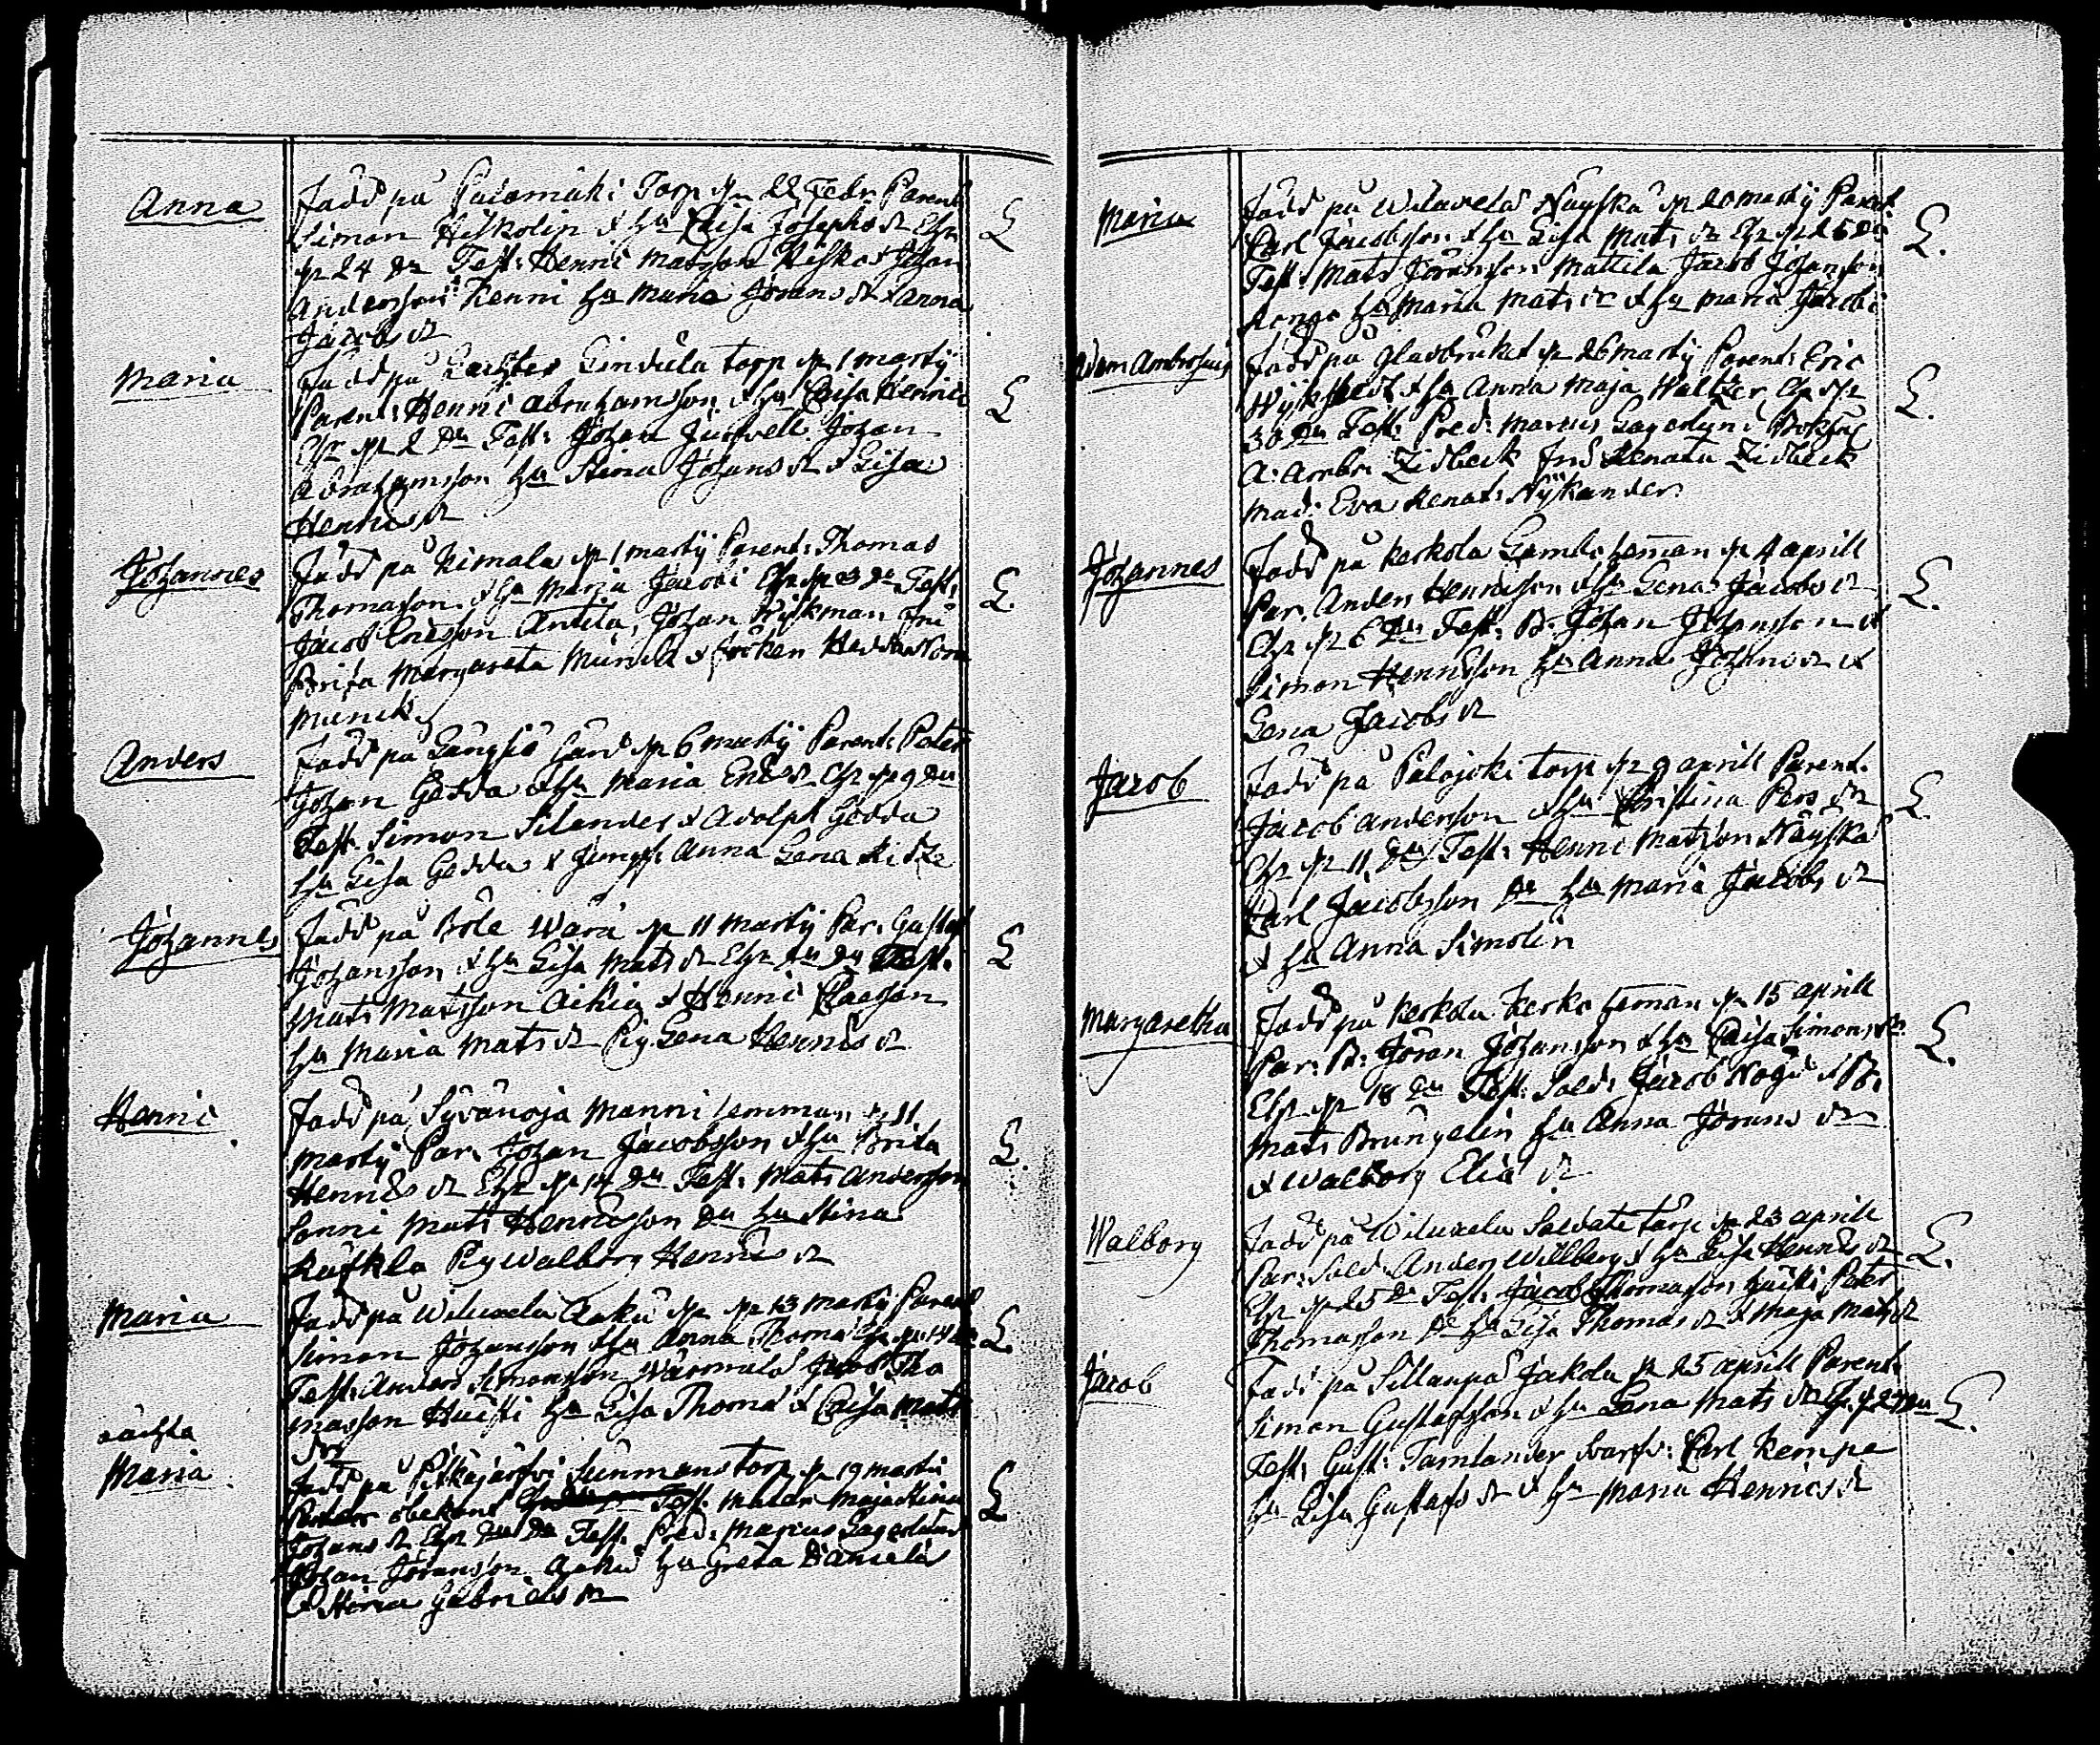 Anna
Född på Palomäki Torp d. 22 Febr. Parent:
Simon Hiskolin & Hu Caisa Josephs dr Chr.
d. 24 Du Test: Henric Matsson Kisko & Johan
Andersson Kenni Hu Maria Jörans dr & Anna
Jacobs dr
Maria
Född på Lindula torp d. 1 Martij
Parent: Henric Abrahamsson & Hu Caisa Henrics
Chr d. 2 Du Test: Johan Johan
Abrahamsson Hu Stina Johans dr & Lisa
Henrics dr
Johannes
Född på Kimala d. 1 Martij Parent: Thomas
Thomasson & Hu Maria Jacobi Chr d. 3 Du Test:
Jacob Ericsson Antila, Johan Wijkman Fru
Brita Margareta Munck & Fröken Hedda Nora
Munck
Anders
Född på Långsiö Gård d. 6 Martij Parent: Peter
Johan Gedda & Hu Maria Erics dr Chr d. 9 Du
Test. Simon Silander & Adolph Gedda
Hu Lisa Gedda & Jungf: Anna Lena
Johannes
Född på Böle Wara d. 11 Martij Par. Gustaf
Johansson & Hu Lisa Mats dr Chr Du Du Test.
Mats Matsson & Henric Claesson
Hu Maria Mats dr Pig. Lena Henrics dr
Henric
Född på Syvänoja Manni hemman d. 11
Martij Par. Johan Jacobsson & Hu Brita
Henrics dr Chr d. 14 Du Test. Mats Andersson
Sonni Mats Henricsson Du Hu Stina
Pig Walborg Henrics dr
Maria
Född på Wiluxela Aaku d. 13 Martij Parent
Simon Johansson & Hu Anna Thomæ Chr d. 14 Du
Test: Anders Simonsson Wärmälä Jacob Tho
masson Huisti Hu Lisa Thomæ & Caisa Mats
dr
oächta
Maria
Född på Pitkäjärfvi Sunmans torp d. 19 Martii
Fader obekant Moder Maja Stina
Johans dr Chr Du Du Test. Pred: Marcus Lagerlund
Johan Jöransson Aaku Hu Greta Daniels
& Stina Gabriels dr
Maria
Född på Wiluxela Näyskä d. 20 Martij Parent
Carl Jacobsson & Hu Lisa Mats dr Chr d. 25 Du
Test. Mats Jöransson Mattila Jacob Johansson
Hu Maria Mats dr & Hu Maria Jacobi
Adam Ambrosius
Född på Glasbruket d. 26 Martij Parent: Eric
& Hu Anna Maja Waltzer Chr d.
30 Du Test. Pred: Marcus Lagerlund Bokh:
A: Ambr: Zidbeck Fru Renata Zidbeck
Mad: Eva Renat: Nykander.
Johannes
Född på Kerkola Gambo heman d. 4 Aprill
Par. Anders Henricsson & Hu Lena Jacobs dr
Chr d. 6 Du Test. B. Johan Johansson &
Simon Henricsson Hu Anna Johans dr &
Lena Jacobs dr
Jacob
Född på Palojoki torp d. 9 Aprill Parent.
Jacob Andersson & Hu Christina Pers dr
Chr d. 11 Du Test. Henric Matsson Näyskä
Carl Jacobsson Du Hu Maria Jacobs dr
& Hu Anna Simolin
Margaretha
Född på Kerkola Kerko heman d. 15 Aprill
Par. B: Jöran Johansson & Hu Caisa Simons dr
Chr d. 18 Du Test. Sold: Jacob & B:
Mats Brungelin Hu Anna Jörans dr
& Walborg Eliæ dr
Walborg
Född på Wiluxela Soldate torp d. 23 Aprill
Par: Sold: Anders Willberg & Hu Lisa Henrics dr
Chr d. 25 Du Test. Jacob Thomasson Huisti Peter
Thomasson Du Hu Lisa Thomas dr & Maja Mats dr
Jacob
Född på Sillanpä Jakola d. 25 Aprill Parent:
Simon Gustafsson & Hu Lena Mats dr Chr d. 27 Du
Test: Gust: Tamlander Svarfv: Carl Kempe
Hu Lisa Gustafs dr & Hu Maria Henrics dr